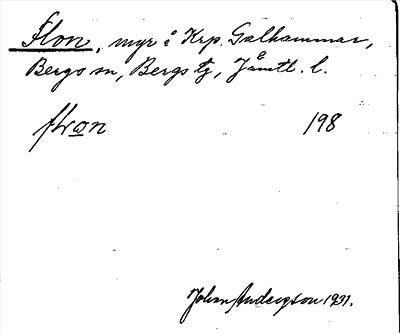 Flon, myr å Krp. Galhammar,
Bergs sn, Bergs tg, Jämtl. l.
198
Johan Anderson 1931.